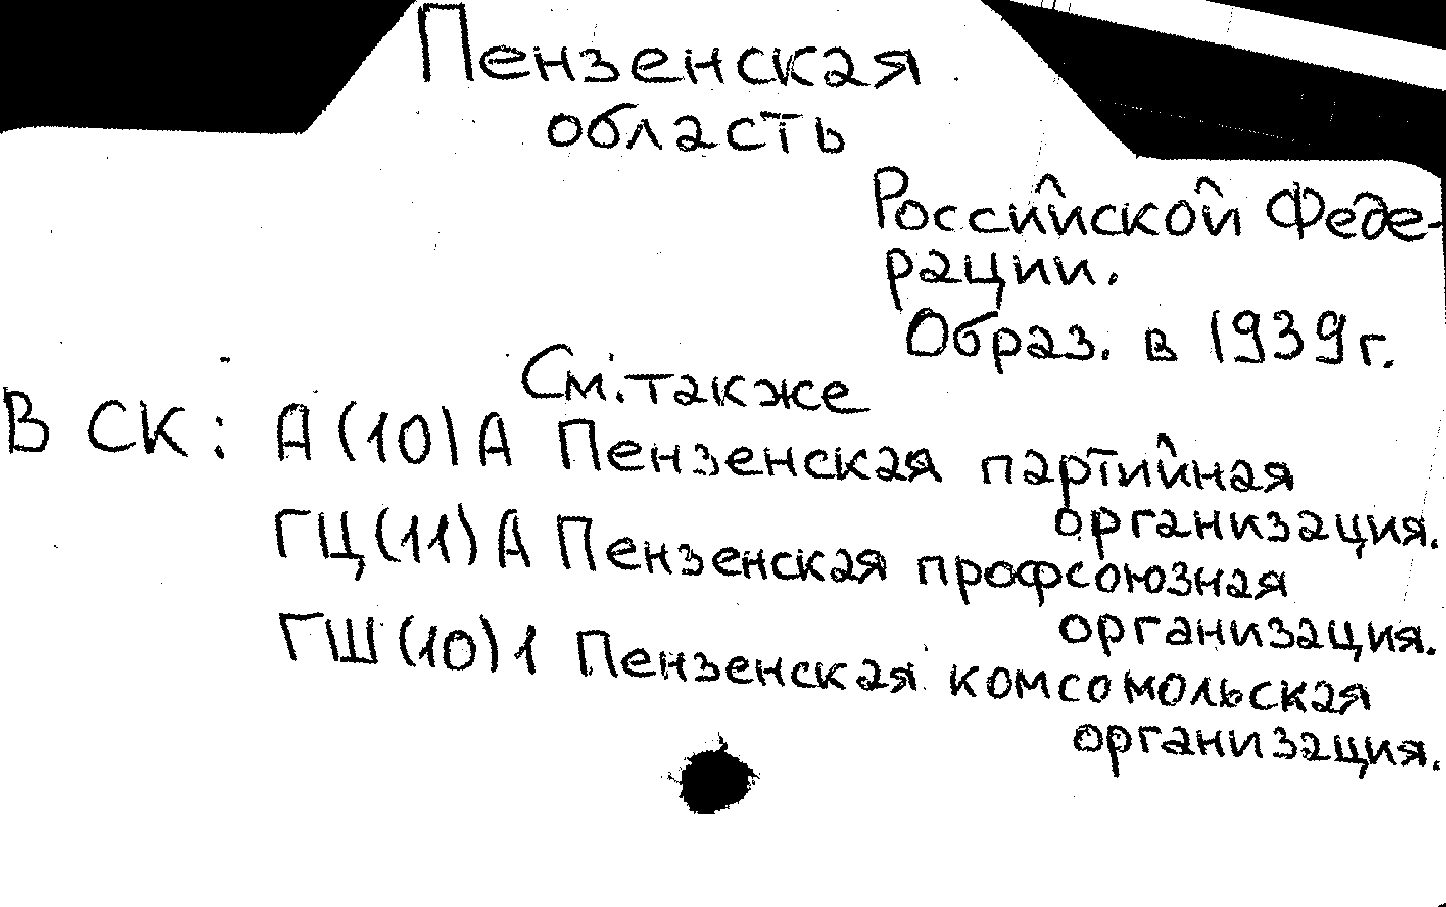 Пензенская
область
Российской Феде-
рации.
Образ. в 1939 г.
См. также
В СК: А(10)А Пензенская партийная
организация.
ГЦ(11)А Пензенская профсоюзная
организация.
ГШ(10)1 Пензенская комсомольская
организация.